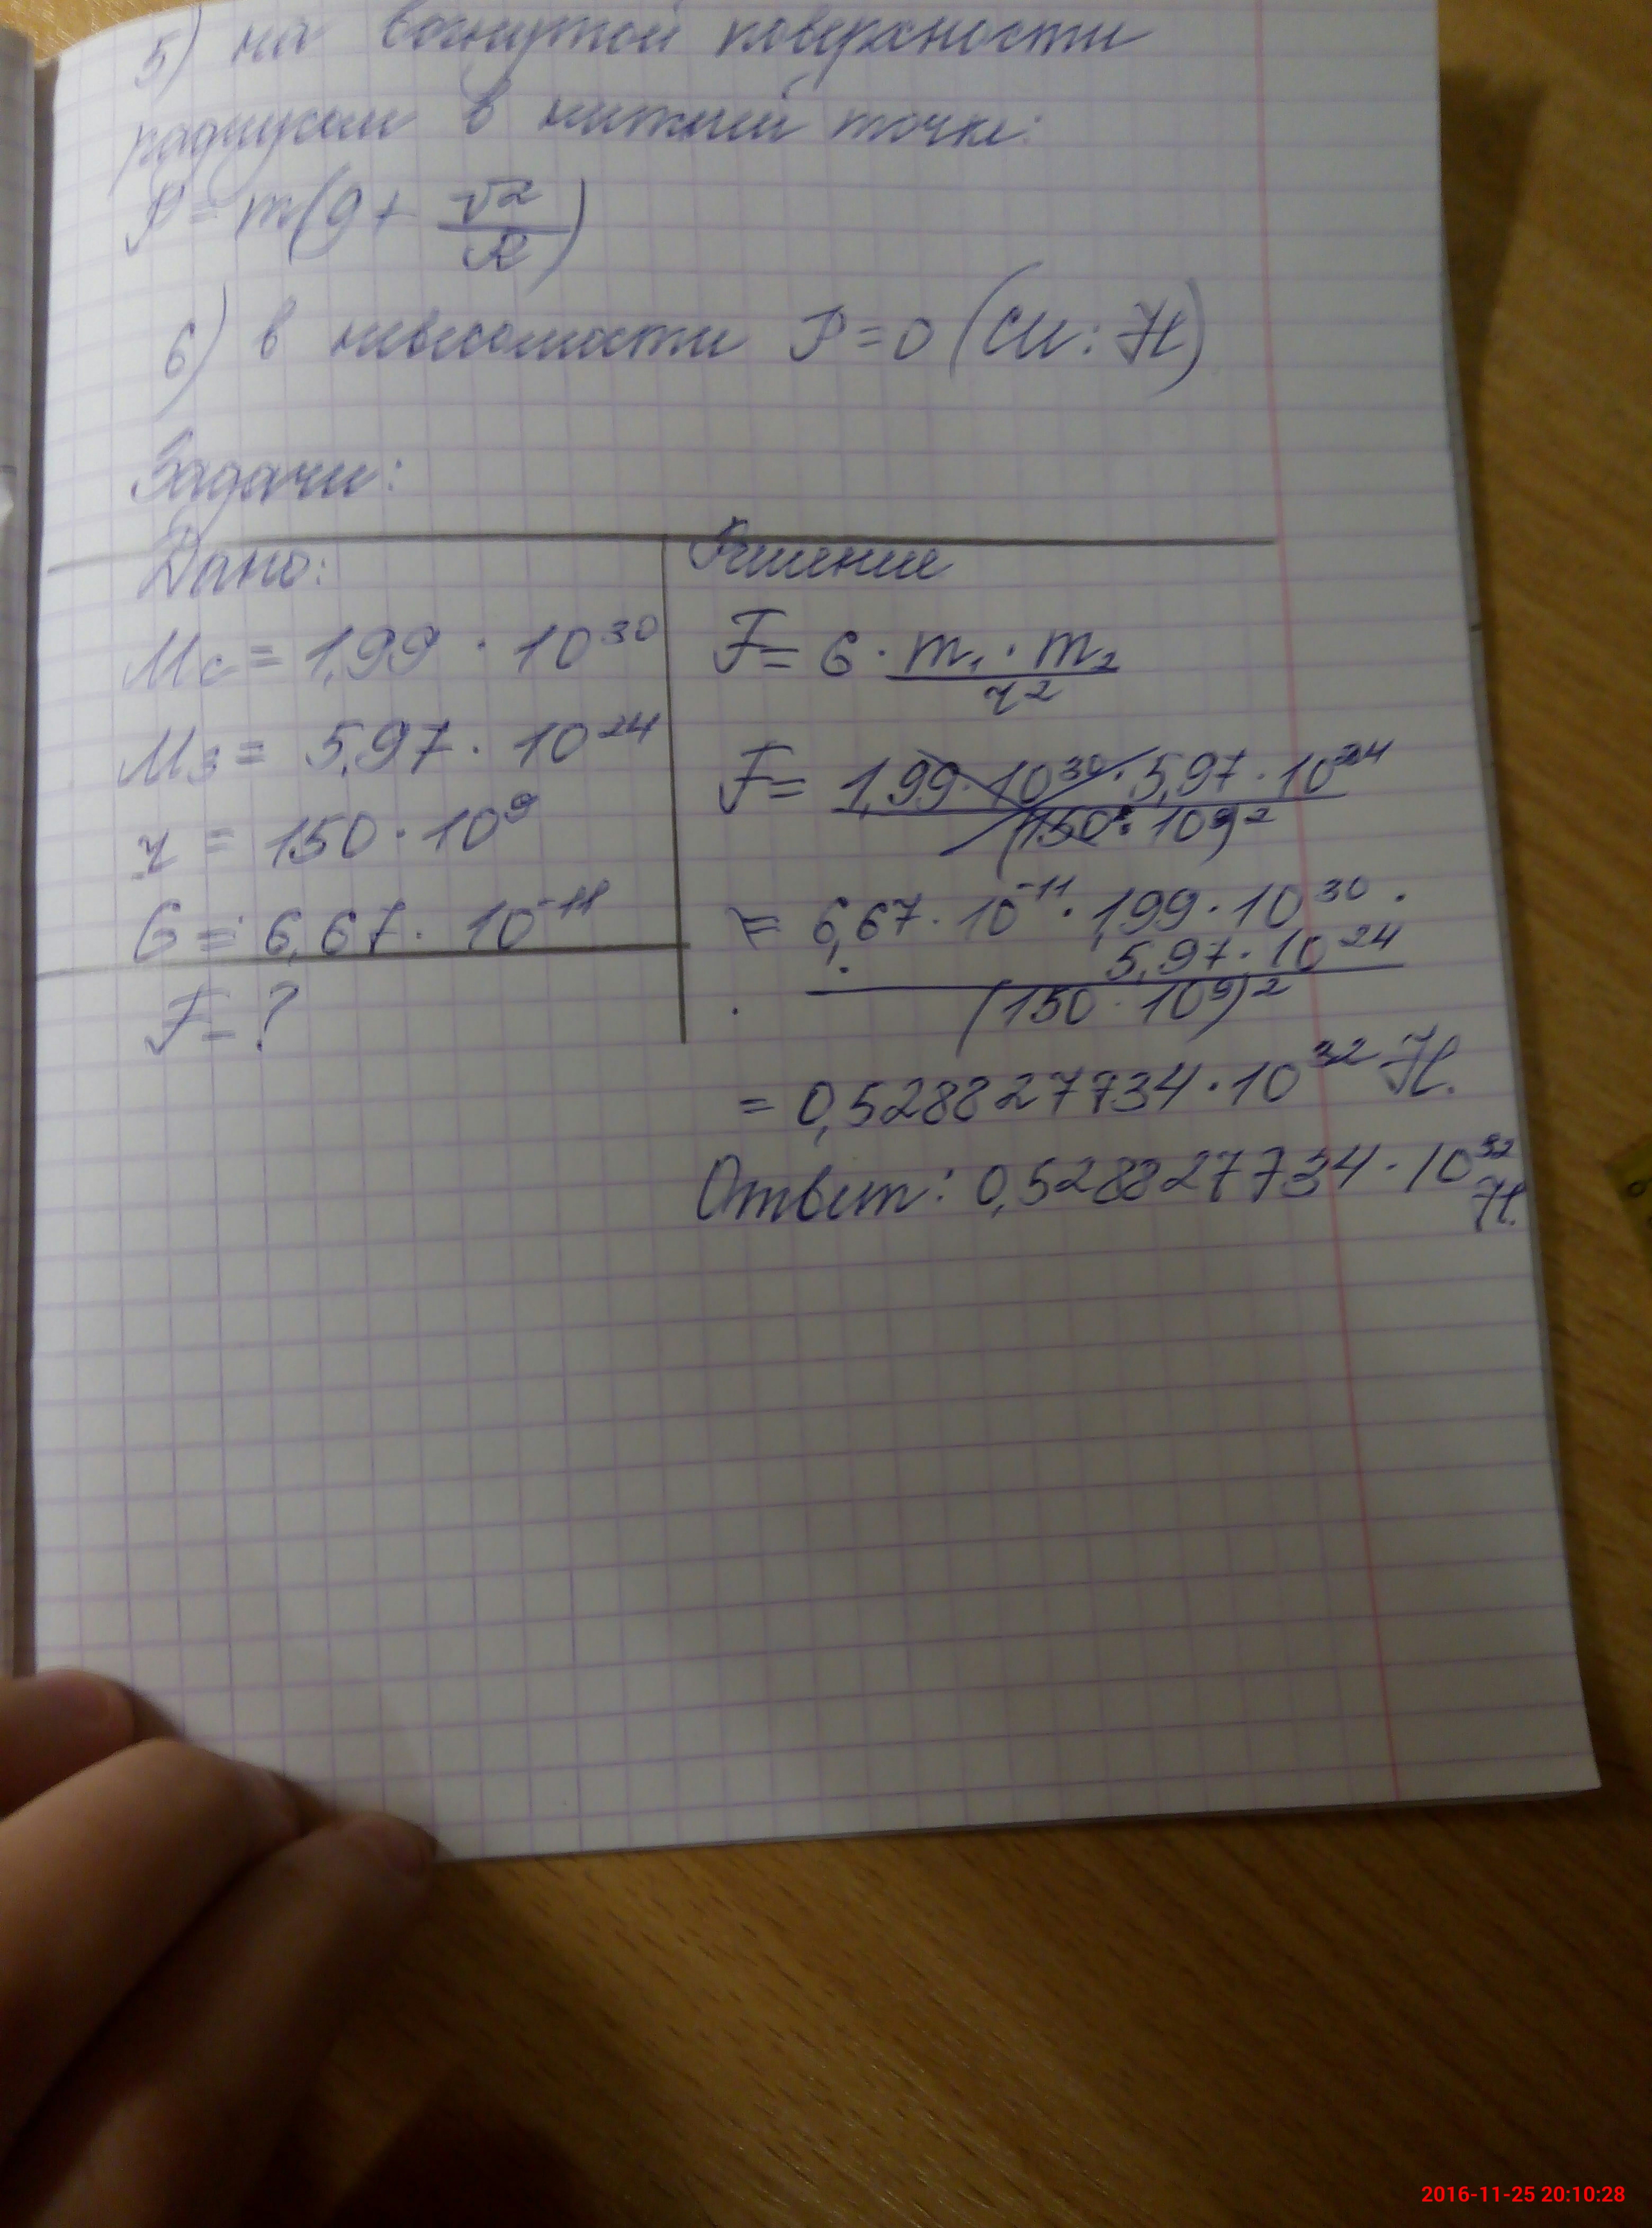 5) на вогнутой поверхности
радиусом в нижней точке:
P = m(g + v²/R)
6) в невесомости P = 0 (СИ: Н)
Задачи:
Дано:
Mс = 1,99 · 10³⁰
Mз = 5,97 · 10²⁴
r = 150 · 10⁹
G = 6,67 · 10⁻¹¹
F = ?
Решение
F = G · m₁ · m₂ / r²
F = 1,99 · 10³⁰ · 5,97 · 10²⁴ / (150 · 10⁹)²
= 6,67 · 10⁻¹¹ · 1,99 · 10³⁰ ·
5,97 · 10²⁴
(150 · 10⁹)²
= 0,528827734 · 10³² Н.
Ответ: 0,528827734 · 10³²
Н.
2016-11-25 20:10:28